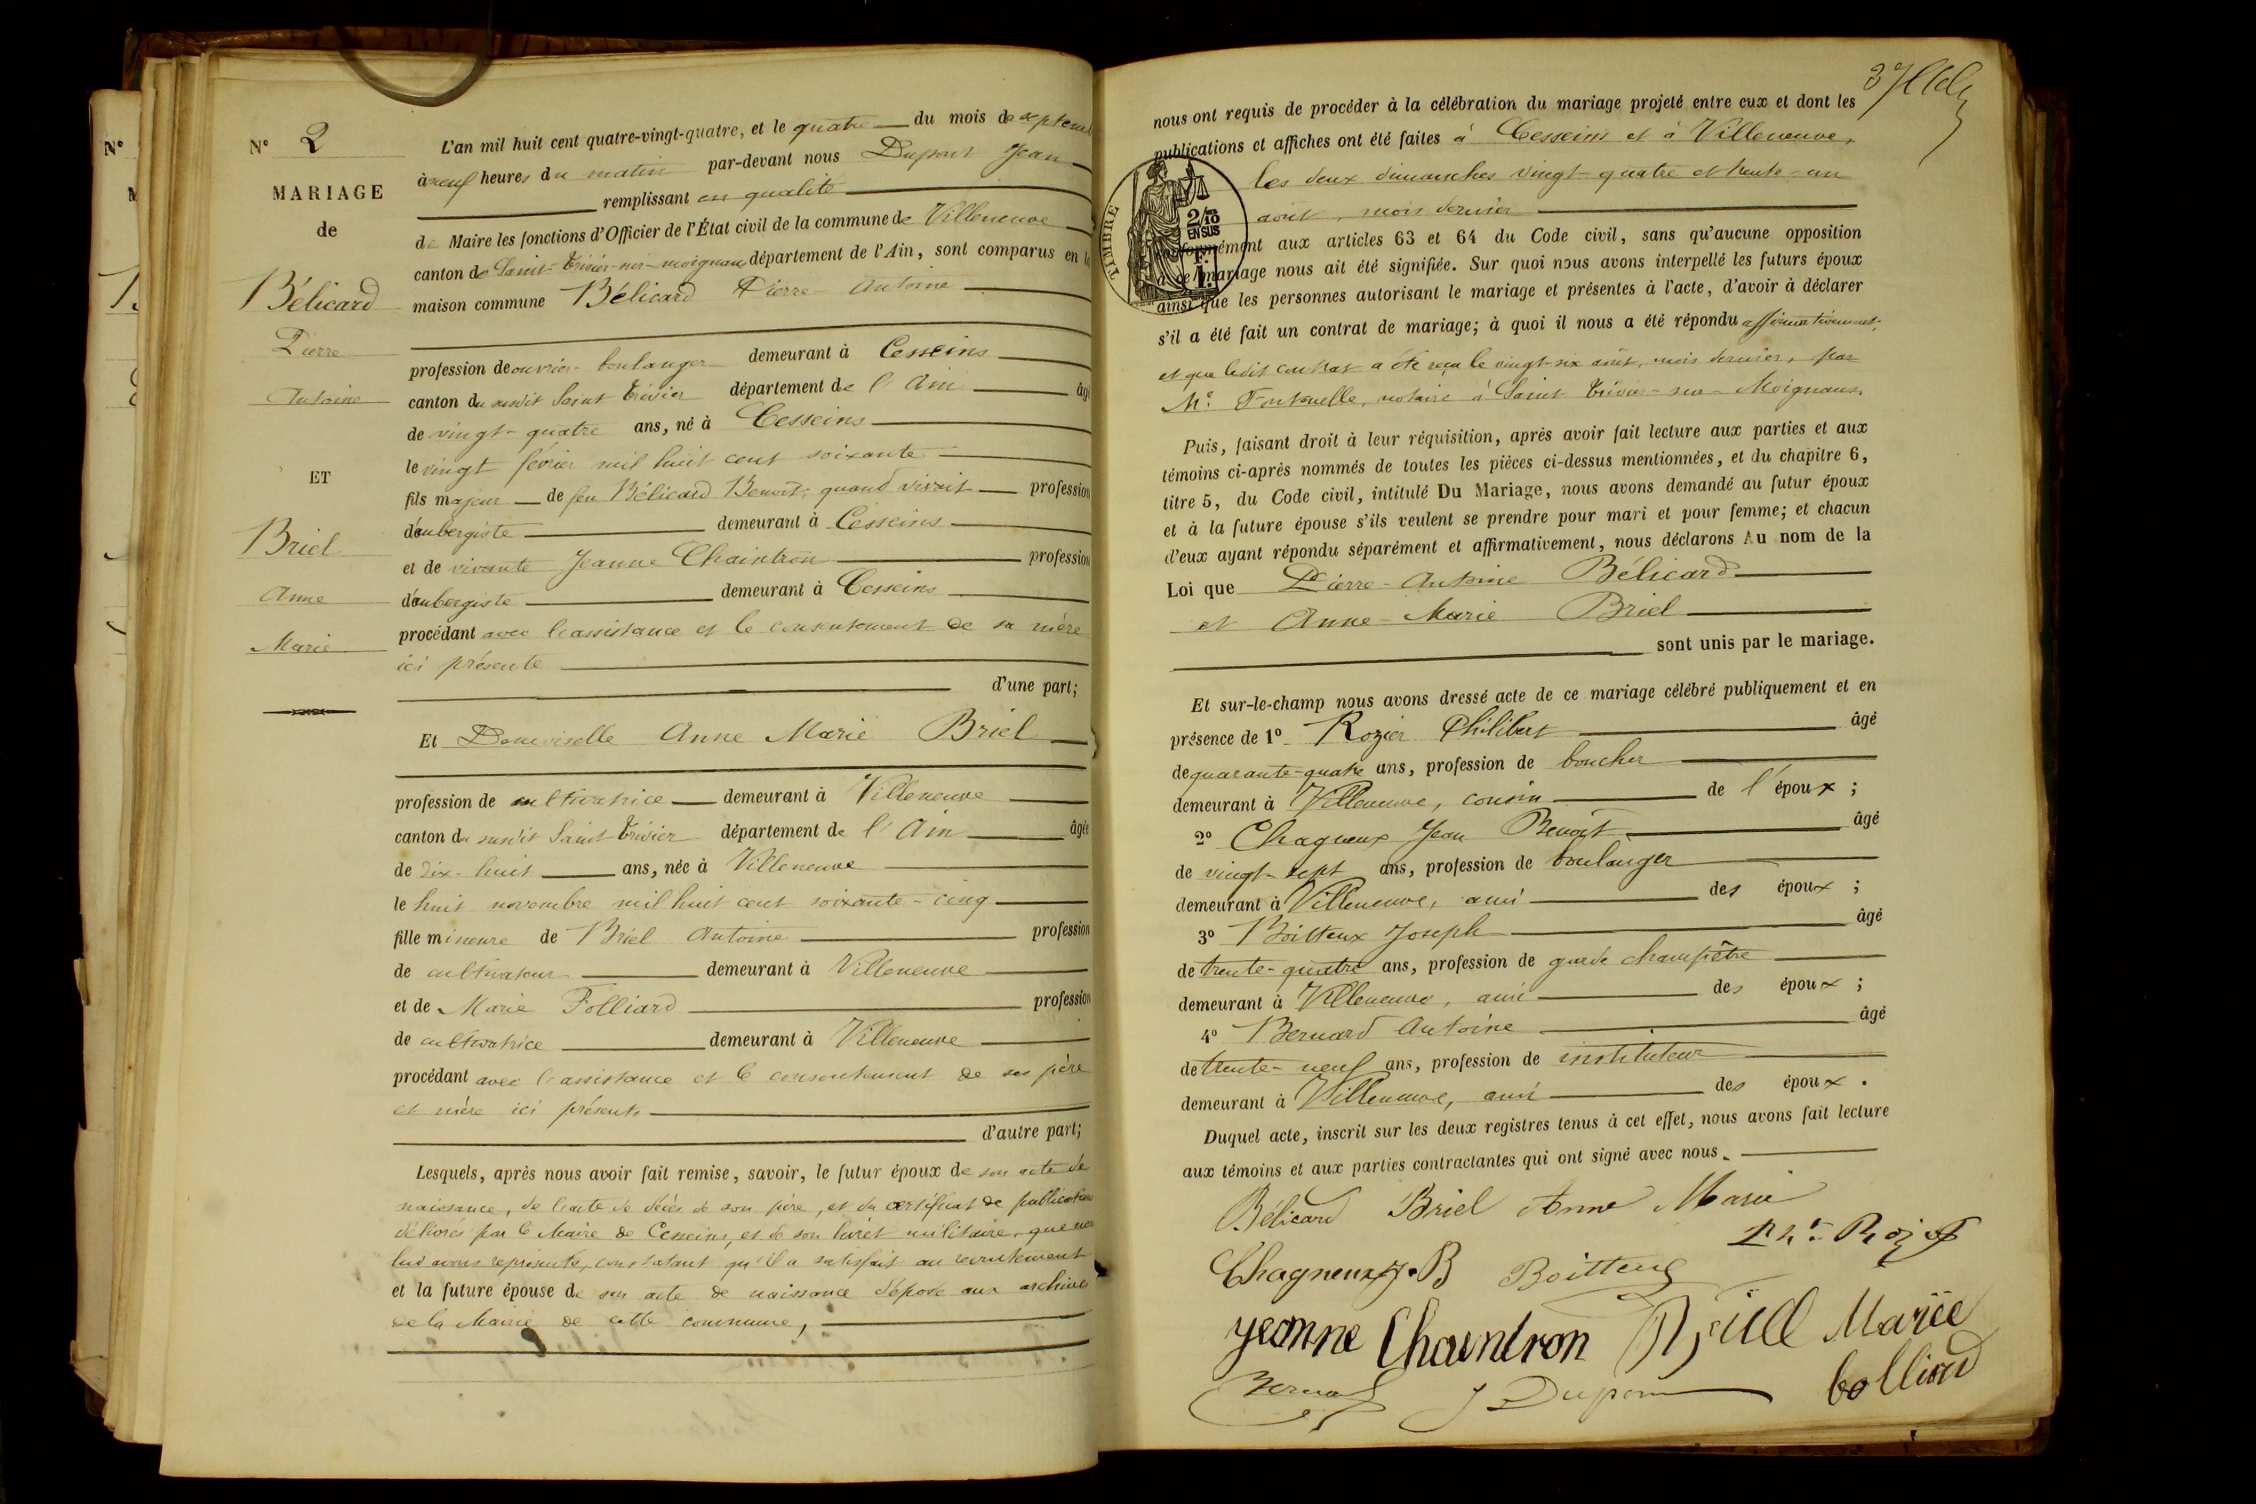 N° 2
MARIAGE
de
Bélicard
Pierre
Antoine
ET
Briel
Anne
Marie
L'an mil huit cent quatre-vingt-quatre, et le quatre du mois de septemb
à neuf heures du matin par-devant nous Dupont Jean
remplissant en qualité
de Maire les fonctions d'Officier de l'État civil de la commune de Villeneuve
canton de Saint-Trivier-sur-moignans département de l'Ain, sont comparus en la
maison commune Bélicard Pierre Antoine
profession de ouvrier boulanger demeurant à Cesseins
canton du susdit Saint Trivier département de l'Ain âgé
de vingt-quatre ans, né à Cesseins
le vingt février mil huit cent soixante
fils majeur de feu Bélicard Benoît, quand vivait profession
d'aubergiste demeurant à Cesseins
et de vivante Jeanne Chaintron profession
d'aubergiste demeurant à Cesseins
procédant avec l'assistance et le consentement de sa mère
ici présente
d'une part;
Et Demoiselle Anne Marie Briel
profession de cultivatrice demeurant à Villeneuve
canton du susdit Saint Trivier département de l'Ain âgée
de dix-huit ans, née à Villeneuve
le huit novembre mil huit cent soixante-cinq
fille mineure de Briel Antoine profession
de cultivateur demeurant à Villeneuve
et de Marie Folliard profession
de cultivatrice demeurant à Villeneuve
procédant avec l'assistance et le consentement de ses père
et mère ici présents
d'autre part;
Lesquels, après nous avoir fait remise, savoir, le futur époux de son acte de
naissance, de l'acte de décès de son père, et du certificat de publication
délivrés par le Maire de Cesseins, et de son livret militaire, que
lui avons représenté, constatant qu'il a satisfait au recrutement
et la future épouse de son acte de naissance déposé aux archives
de la Mairie de cette commune,
nous ont requis de procéder à la célébration du mariage projeté entre eux et dont les
publications et affiches ont été faites à Cesseins et à Villeneuve,
les deux dimanches vingt-quatre et trente-un
août, mois dernier
TIMBRE
2/10
EN SUS
conformément aux articles 63 et 64 du Code civil, sans qu'aucune opposition
à ce mariage nous ait été signifiée. Sur quoi nous avons interpellé les futurs époux
ainsi que les personnes autorisant le mariage et présentes à l'acte, d'avoir à déclarer
s'il a été fait un contrat de mariage; à quoi il nous a été répondu affirmativement,
et que ledit contrat a été reçu le vingt-six août, mois dernier, par
Me Fontanelle, notaire à Saint Trivier-sur-Moignans.
Puis, faisant droit à leur réquisition, après avoir fait lecture aux parties et aux
témoins ci-après nommés de toutes les pièces ci-dessus mentionnées, et du chapitre 6,
titre 5, du Code civil, intitulé Du Mariage, nous avons demandé au futur époux
et à la future épouse s'ils veulent se prendre pour mari et pour femme; et chacun
d'eux ayant répondu séparément et affirmativement, nous déclarons Au nom de la
Loi que Pierre-Antoine Bélicard
et Anne-Marie Briel
sont unis par le mariage.
Et sur-le-champ nous avons dressé acte de ce mariage célébré publiquement et en
présence de 1° Rozier Philibert âgé
de quarante-quatre ans, profession de boucher
demeurant à Villeneuve, cousin de l'époux;
2° Chagneux Jean Benoît âgé
de vingt-sept ans, profession de boulanger
demeurant à Villeneuve, ami des époux;
3° Boitteux Joseph âgé
de trente-quatre ans, profession de garde champêtre
demeurant à Villeneuve, ami des époux;
4° Bernard Antoine âgé
de trente-neuf ans, profession de instituteur
demeurant à Villeneuve, ami des époux.
Duquel acte, inscrit sur les deux registres tenus à cet effet, nous avons fait lecture
aux témoins et aux parties contractantes qui ont signé avec nous.
Bélicard Briel Anne Marie
Chagneux J. B Boitteux
yeanne Chaintron Marie
Bernard J Dupont